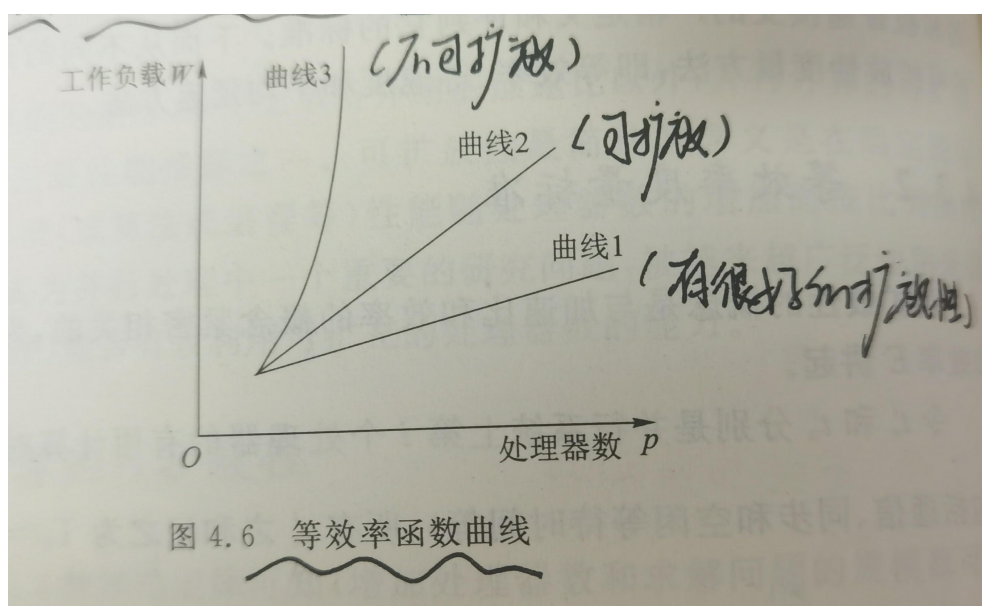 工作负载W
曲线3 (不可扩放)
曲线2 (可扩放)
曲线1 (有很好的扩放性)
O
处理器数 p
图 4.6 等效率函数曲线